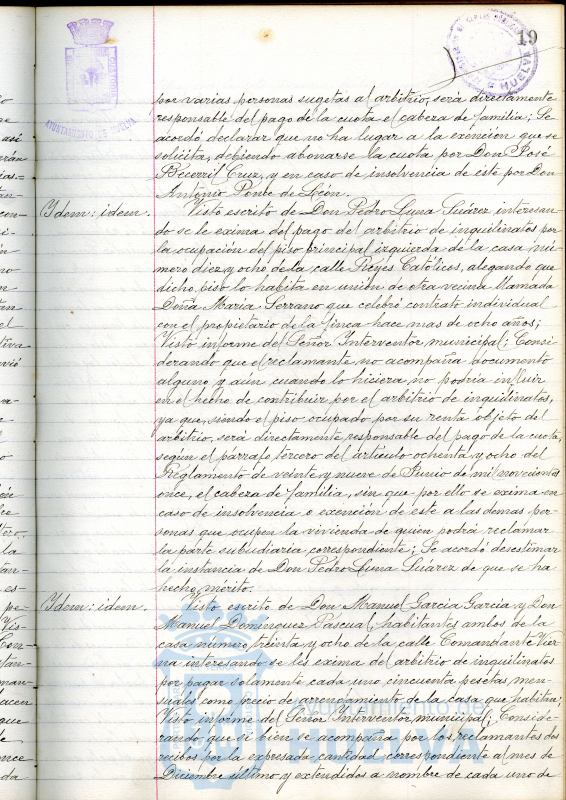 19
AYUNTAMIENTO DE HUELVA
HUELVA
por varias personas sugetas al arbitrio, será directamente
responsable del pago de la cuota el cabeza de familia; Se
acordó declarar que no ha lugar a la exención que se
solicita, debiendo abonarse la cuota por Don José
Becerril Cruz, y en caso de insolvencia de este por Don
Antonio Ponte de León.
Idem: idem.
Visto escrito de Don Pedro Luna Suárez interesan-
do se le exima del pago del arbitrio de inquilinatos por
la ocupación del piso principal izquierda de la casa nú-
mero diez y ocho de la calle Reyes Católicos, alegando que
dicho piso lo habita en unión de otra vecina llamada
Doña Maria Serrano que celebró contrato individual
con el propietario de la finca hace mas de ocho años;
Visto informe del Señor Interventor municipal; Consi-
derando que el reclamante no acompaña documento
alguno y aun cuando lo hiciera no podria influir
en el hecho de contribuir por el arbitrio de inquilinatos,
ya que, siendo el piso ocupado por su renta objeto del
arbitrio, será directamente responsable del pago de la cuota,
según el párrafo tercero del articulo ochenta y ocho del
Reglamento de veinte y nueve de Junio de mil novecientos
once, el cabeza de familia, sin que por ello se exima en
caso de insolvencia o exención de este a las demas per-
sonas que ocupen la vivienda de quien podrá reclamar
la parte subsidiaria correspondiente; Se acordó desestimar
la instancia de Don Pedro Luna Suárez de que se ha
hecho mérito.
Idem: idem.
Visto escrito de Don Manuel Garcia Garcia y Don
Manuel Dominguez Pascual, habitantes ambos de la
casa número treinta y ocho de la calle Comandante Vier-
na interesando se les exima del arbitrio de inquilinatos
por pagar solamente cada uno cincuenta pesetas men-
suales como precio de arrendamiento de la casa que habitan;
Visto informe del Señor Interventor municipal; Conside-
rando que si bien se acompaña por los reclamantes dos
recibos por la expresada cantidad correspondiente al mes de
Diciembre último y extendidos a nombre de cada uno de